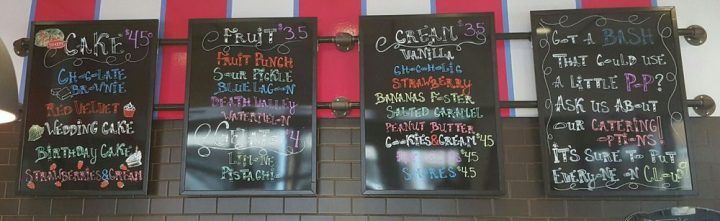 CAKE $4.50
CHOCOLATE
BROWNIE
RED VELVET
WEDDING CAKE
BIRTHDAY CAKE
STRAWBERRIES&CREAM
FRUIT $3.5
FRUIT PUNCH
SOUR PICKLE
BLUE LAGOON
DEATH VALLEY
WATERMELON
$4
PISTACHIO
CREAM $3.5
VANILLA
CHOCOHOLIC
STRAWBERRY
BANANAS FOSTER
SALTED CARAMEL
PEANUT BUTTER
COOKIES&CREAM $4.5
$4.5
S'MORES $4.5
GOT A BASH
THAT COULD USE
A LITTLE POP?
ASK US ABOUT
OUR CATERING
OPTIONS!
IT'S SURE TO PUT
EVERYONE ON CLOUD 9